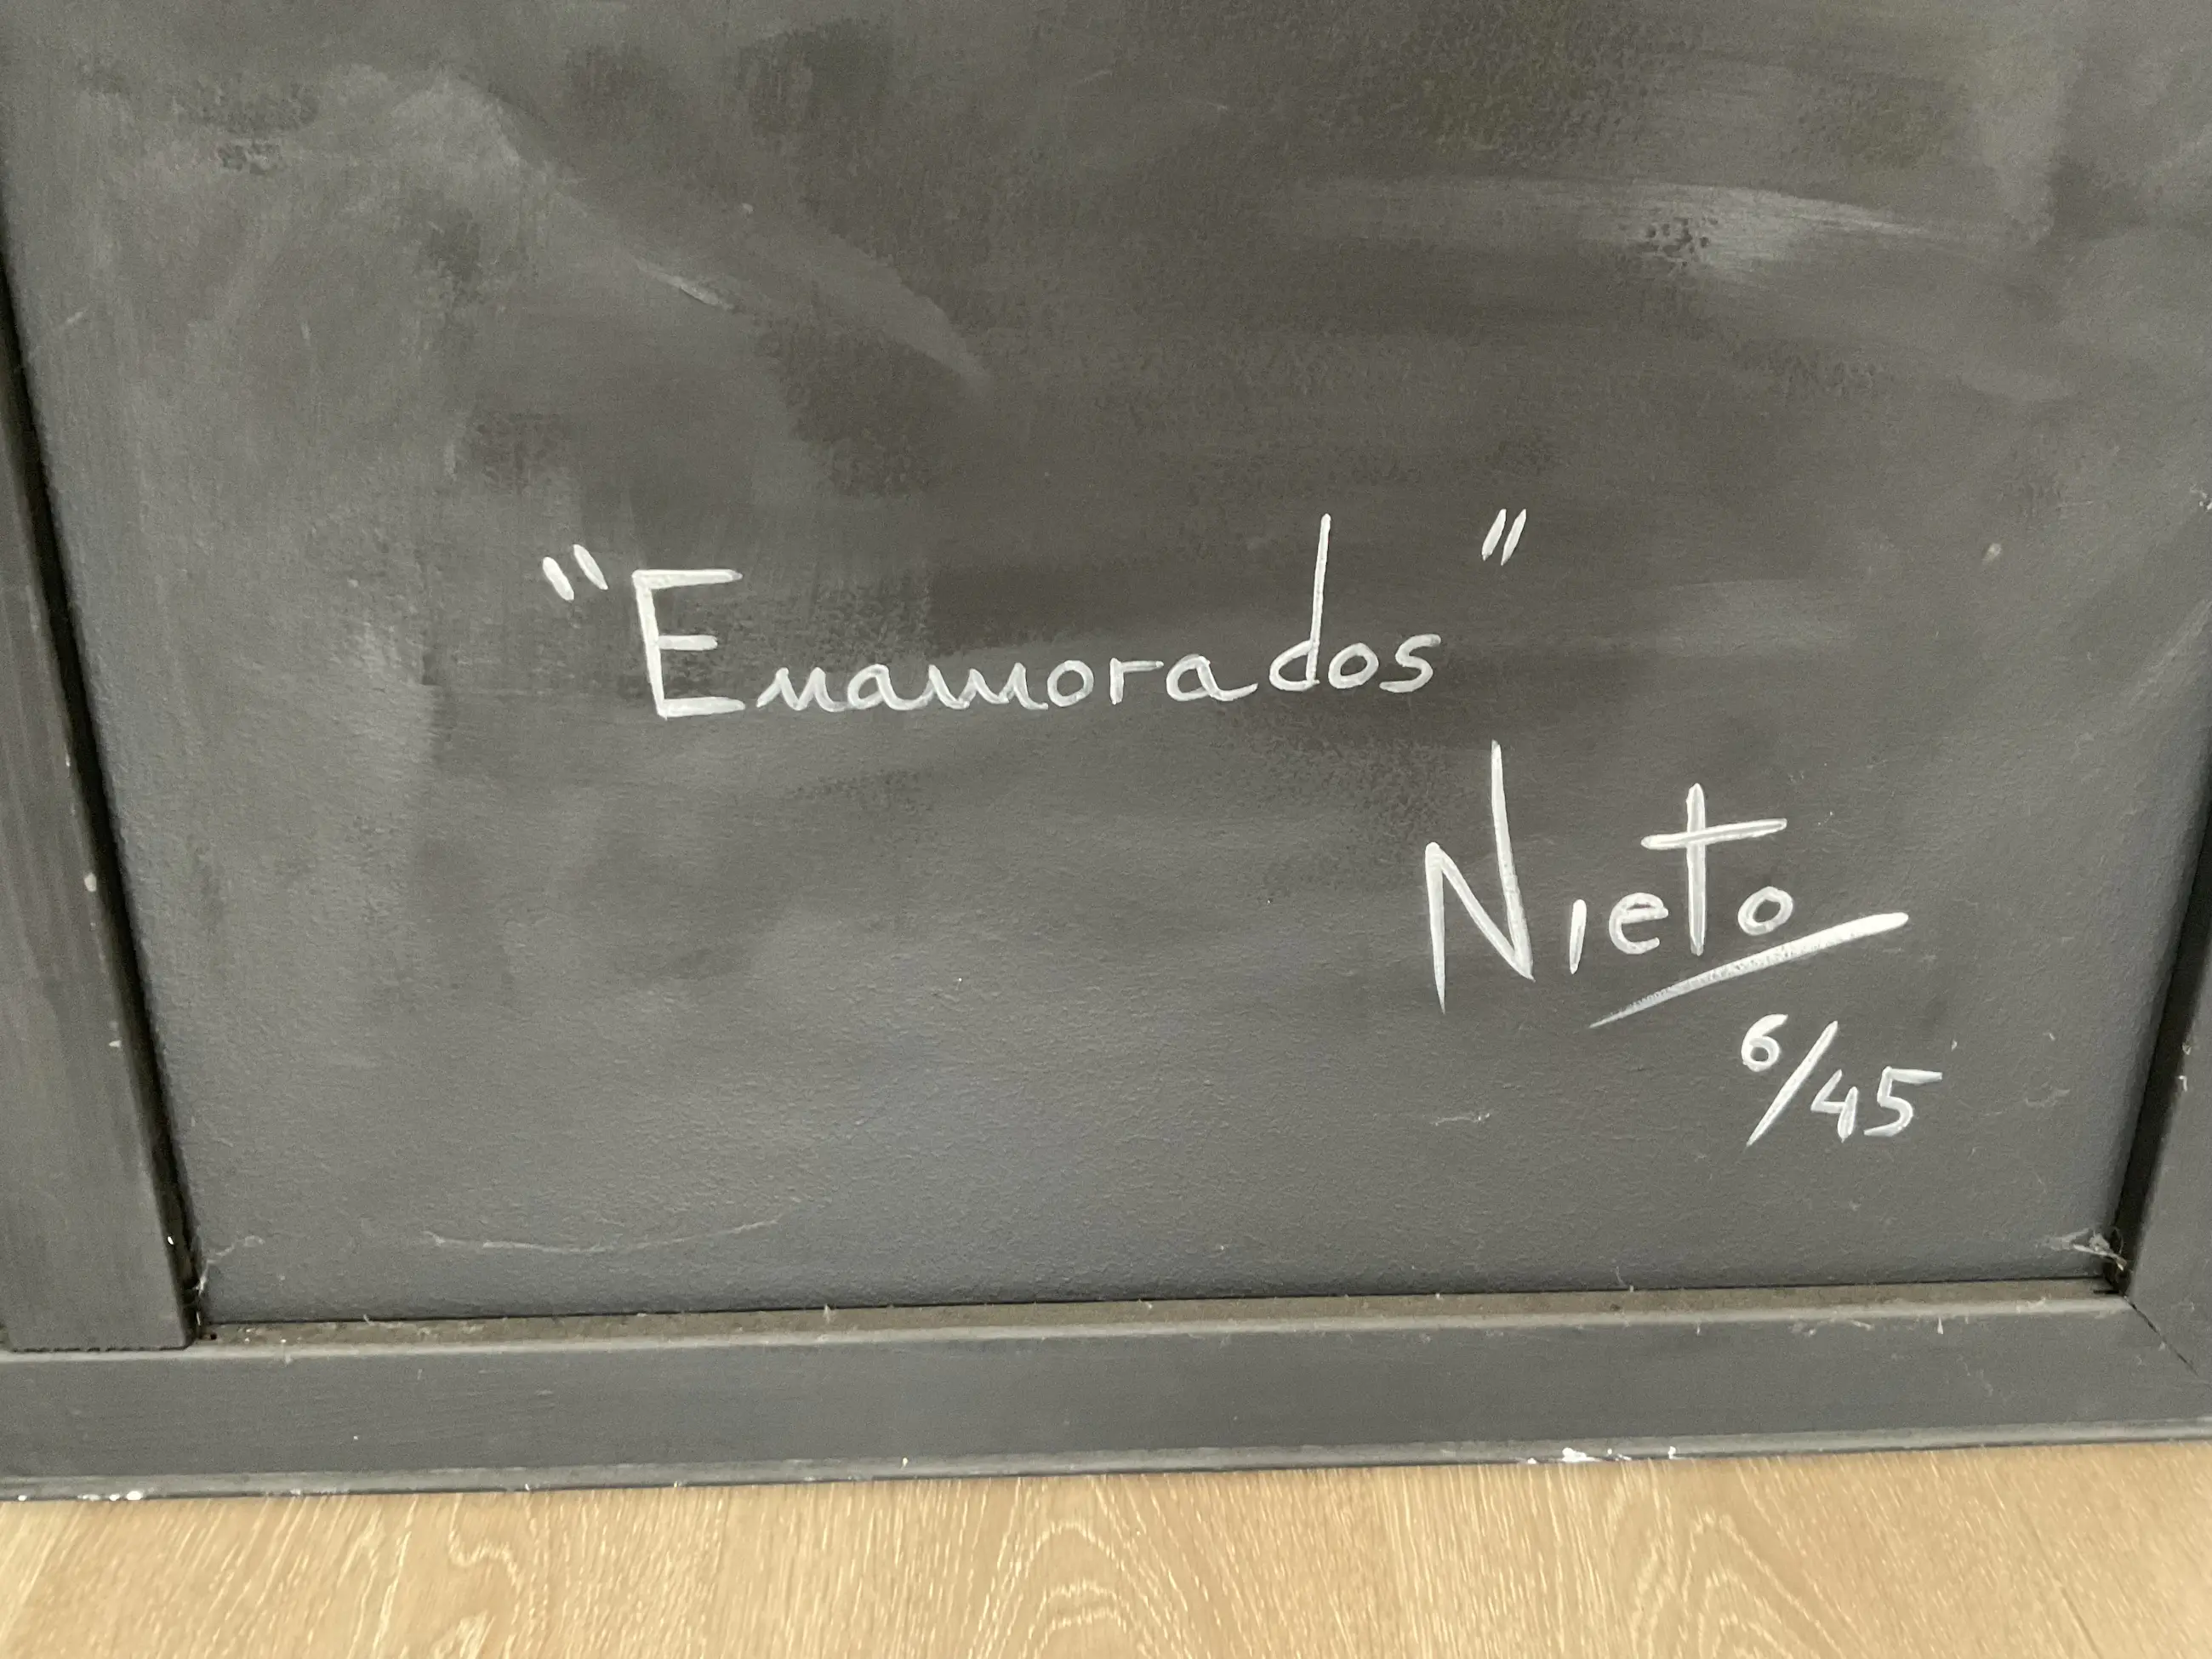 "Enamorados"
Nieto
6/45